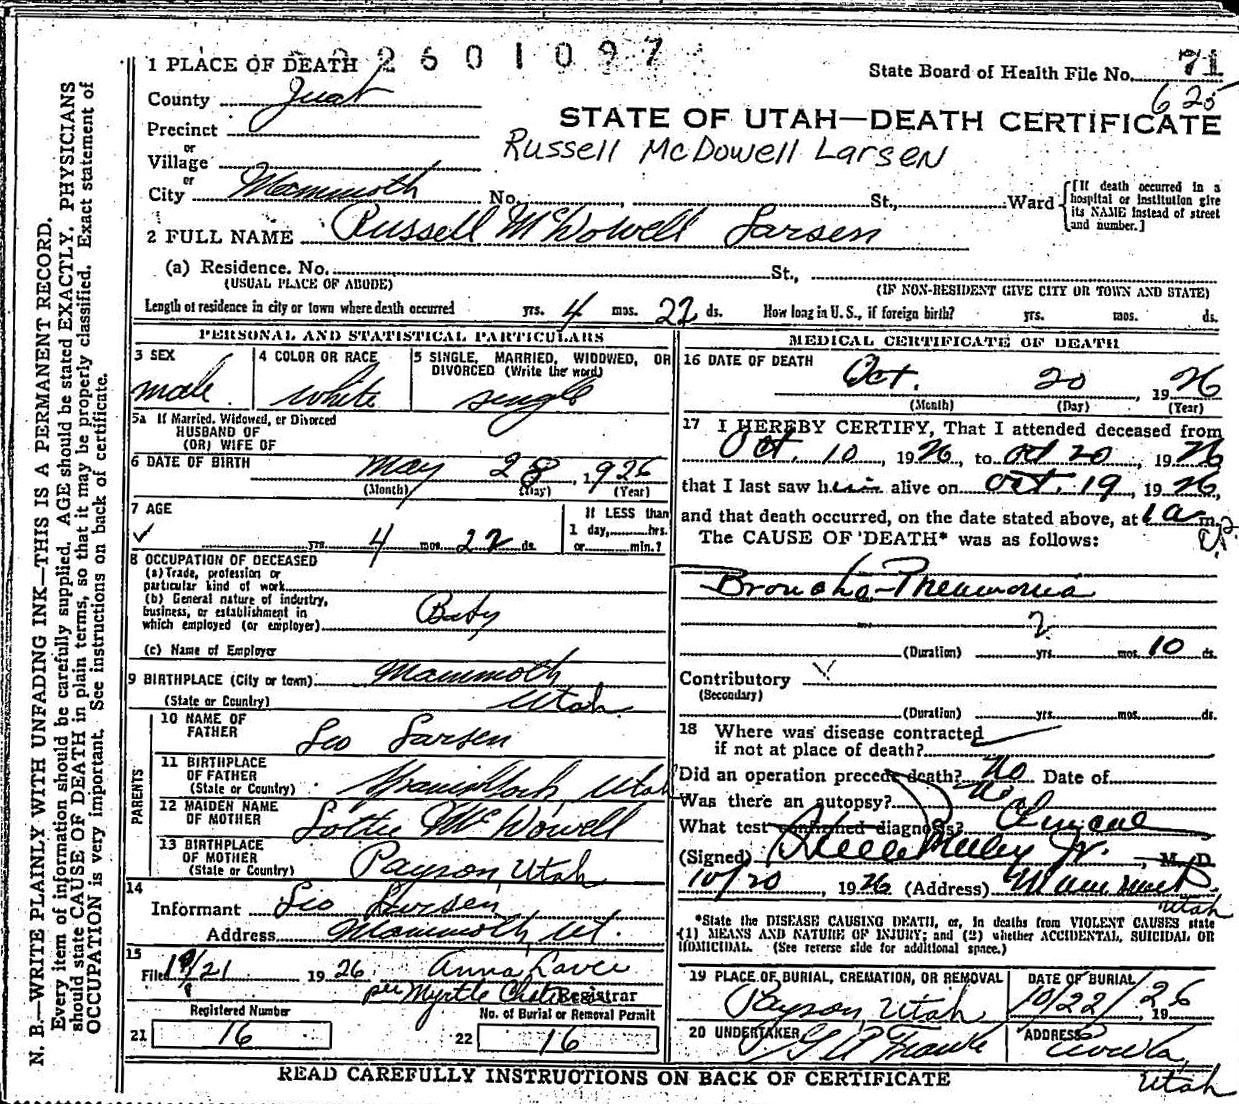 N. B.—WRITE PLAINLY WITH UNFADING INK—THIS IS A PERMANENT RECORD.
Every item of information should be carefully supplied. AGE should be stated EXACTLY. PHYSICIANS
should state CAUSE OF DEATH in plain terms, so that it may be properly classified. Exact statement of
OCCUPATION is very important. See instructions on back of certificate.
2601097
1 PLACE OF DEATH
State Board of Health File No. 71
625
County Juab
STATE OF UTAH—DEATH CERTIFICATE
Precinct
or
Russell McDowell Larsen
Village
or
City Mammoth No. , St., Ward
[If death occurred in a
hospital or institution give
its NAME instead of street
and number.]
2 FULL NAME Russell McDowell Larsen
(a) Residence. No. St.,
(USUAL PLACE OF ABODE) (IF NON-RESIDENT GIVE CITY OR TOWN AND STATE)
Length of residence in city or town where death occurred yrs. 4 mos. 22 ds. How long in U. S., if foreign birth? yrs. mos. ds.
PERSONAL AND STATISTICAL PARTICULARS
3 SEX
male
4 COLOR OR RACE
white
5 SINGLE, MARRIED, WIDOWED, OR
DIVORCED (Write the word)
single
5a If Married, Widowed, or Divorced
HUSBAND OF
(OR) WIFE OF
6 DATE OF BIRTH May 28, 1926
(Month) (Day) (Year)
7 AGE
✓ yrs. 4 mos. 22 ds.
If LESS than
1 day, hrs.
or min.?
8 OCCUPATION OF DECEASED
(a) Trade, profession or
particular kind of work
(b) General nature of industry,
business, or establishment in
which employed (or employer) Baby
(c) Name of Employer
9 BIRTHPLACE (City or town) Mammoth
(State or Country) Utah
PARENTS
10 NAME OF
FATHER Leo Larsen
11 BIRTHPLACE
OF FATHER
(State or Country) Spanish Fork, Utah
12 MAIDEN NAME
OF MOTHER Lottie McDowell
13 BIRTHPLACE
OF MOTHER
(State or Country) Payson, Utah
14
Informant Leo Larsen
Address Mammoth, Ut.
15
Filed 10/21 1926 Anna
per Myrtle Registrar
Registered Number
21 16
No. of Burial or Removal Permit
22 16
MEDICAL CERTIFICATE OF DEATH
16 DATE OF DEATH
Oct. 20, 1926
(Month) (Day) (Year)
17 I HEREBY CERTIFY, That I attended deceased from
Oct. 10, 1926, to Oct 20, 1926
that I last saw him alive on Oct. 19, 1926,
and that death occurred, on the date stated above, at 1 a m.
The CAUSE OF DEATH* was as follows:
Broncho-Pneumonia
2
(Duration) yrs. mos. 10 ds.
Contributory ✓
(Secondary)
(Duration) yrs. mos. ds.
18 Where was disease contracted
if not at place of death?
Did an operation precede death? No Date of
Was there an autopsy? No
What test confirmed diagnosis? Clinical
(Signed) Steele Bailey Jr., M. D.
10/20, 1926 (Address) Mammoth
Utah
*State the DISEASE CAUSING DEATH, or, in deaths from VIOLENT CAUSES state
(1) MEANS AND NATURE OF INJURY; and (2) whether ACCIDENTAL, SUICIDAL OR
HOMICIDAL. (See reverse side for additional space.)
19 PLACE OF BURIAL, CREMATION, OR REMOVAL
Payson, Utah
DATE OF BURIAL
10/22/, 1926
20 UNDERTAKER
ADDRESS
Eureka,
Utah
READ CAREFULLY INSTRUCTIONS ON BACK OF CERTIFICATE